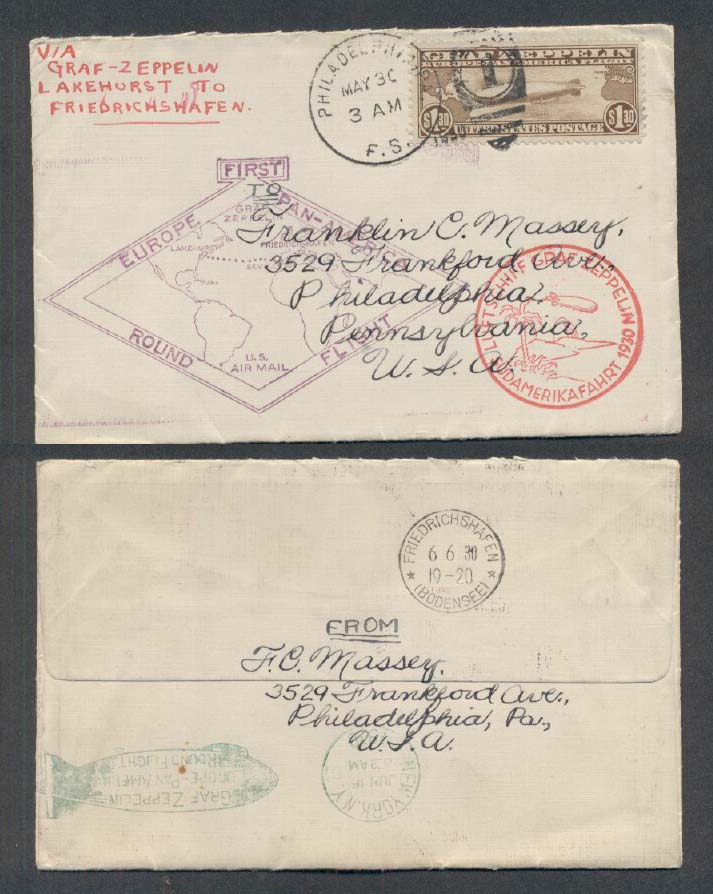 VIA
GRAF-ZEPPELIN
LAKEHURST TO
FRIEDRICHSHAFEN.
PHILADELPHIA
MAY 30
3 AM
F.S.
GRAF ZEPPELIN
EUROPE PAN AMERICA
$1.30 UNITED STATES POSTAGE $1.30
FIRST
EUROPE PAN-AMERICA
ROUND FLIGHT
GRAF
ZEPPELIN
LAKEHURST
FRIEDRICHSHAFEN
U.S.
AIR MAIL
TO
Franklin C. Massey,
3529 Frankford Ave.,
Philadelphia,
Pennsylvania,
U.S.A.
LUFTSCHIFF GRAF ZEPPELIN
SÜDAMERIKAFAHRT 1930
FRIEDRICHSHAFEN
6 6 30
19-20
(BODENSEE)
FROM
F.C. Massey,
3529 Frankford Ave.,
Philadelphia, Pa.,
U.S.A.
GRAF ZEPPELIN
EUROPE-PAN AMERICA
ROUND FLIGHT
NEW YORK, N.Y.
JUN 16
AM